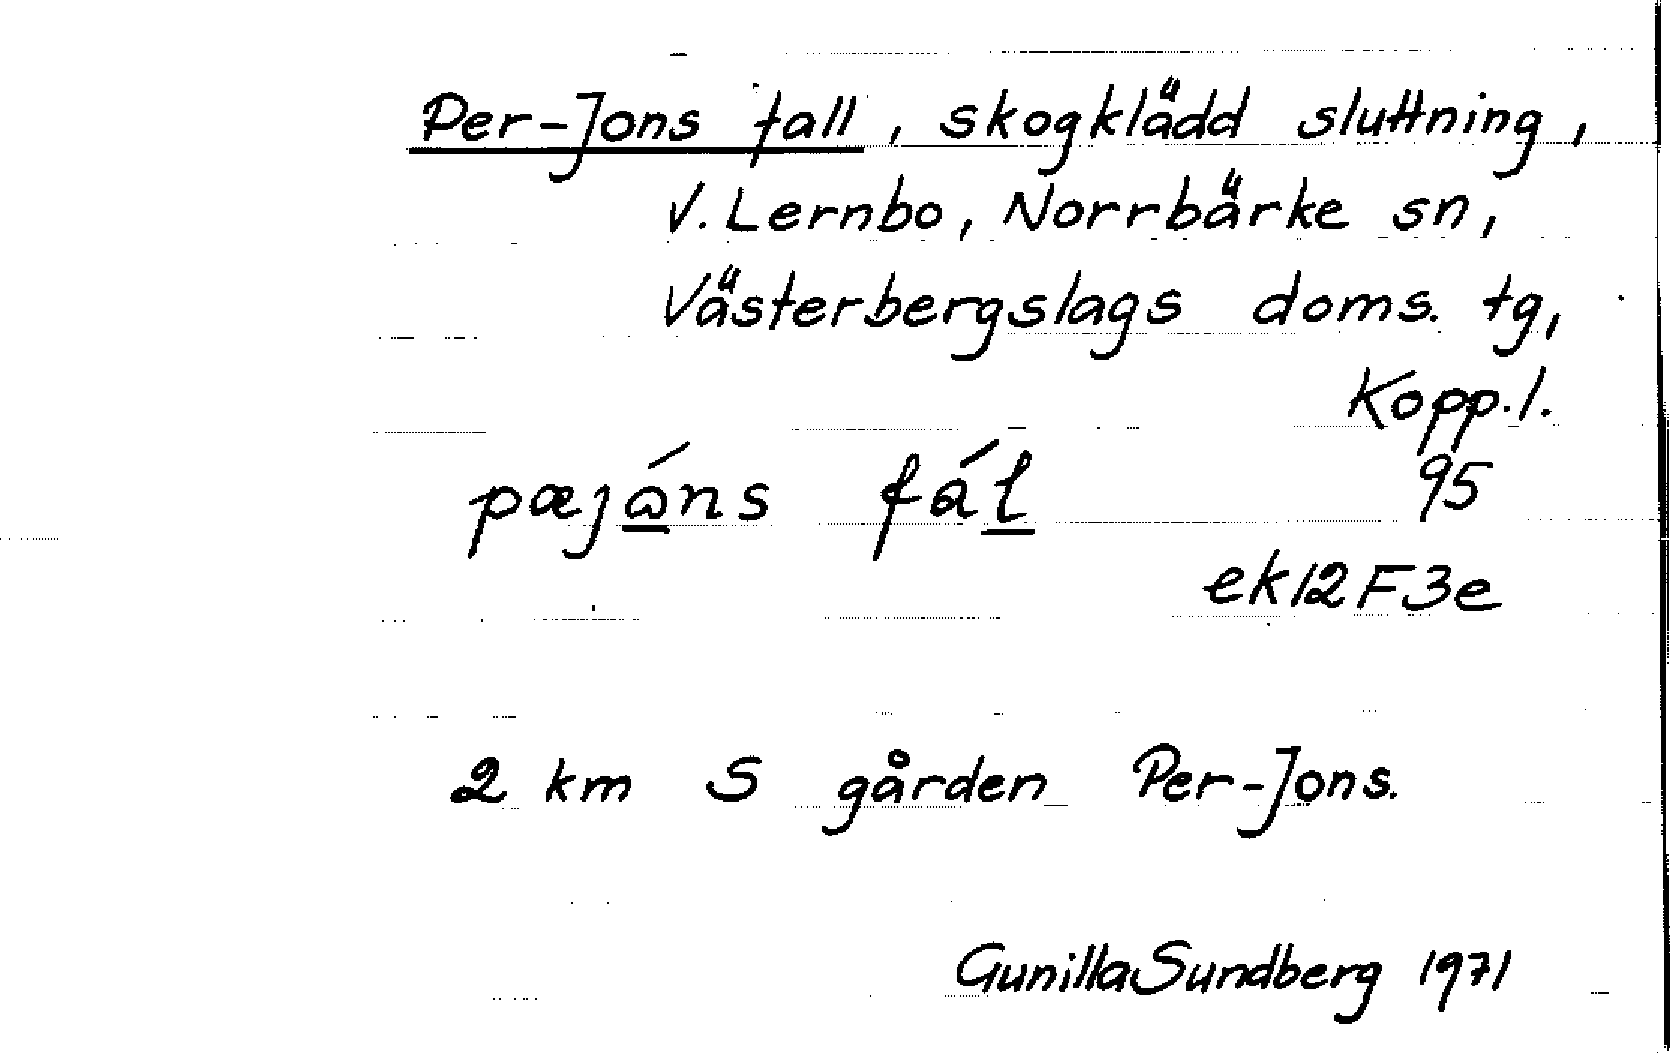 Per-Jons fall, skogklädd sluttning,
V. Lernbo, Norrbärke sn,
Västerbergslags doms. tg,
Kopp. l.
pæjὼ́ns fáƚ 95
ek 12 F 3e
2 km S gården Per-Jons.
Gunilla Sundberg 1971